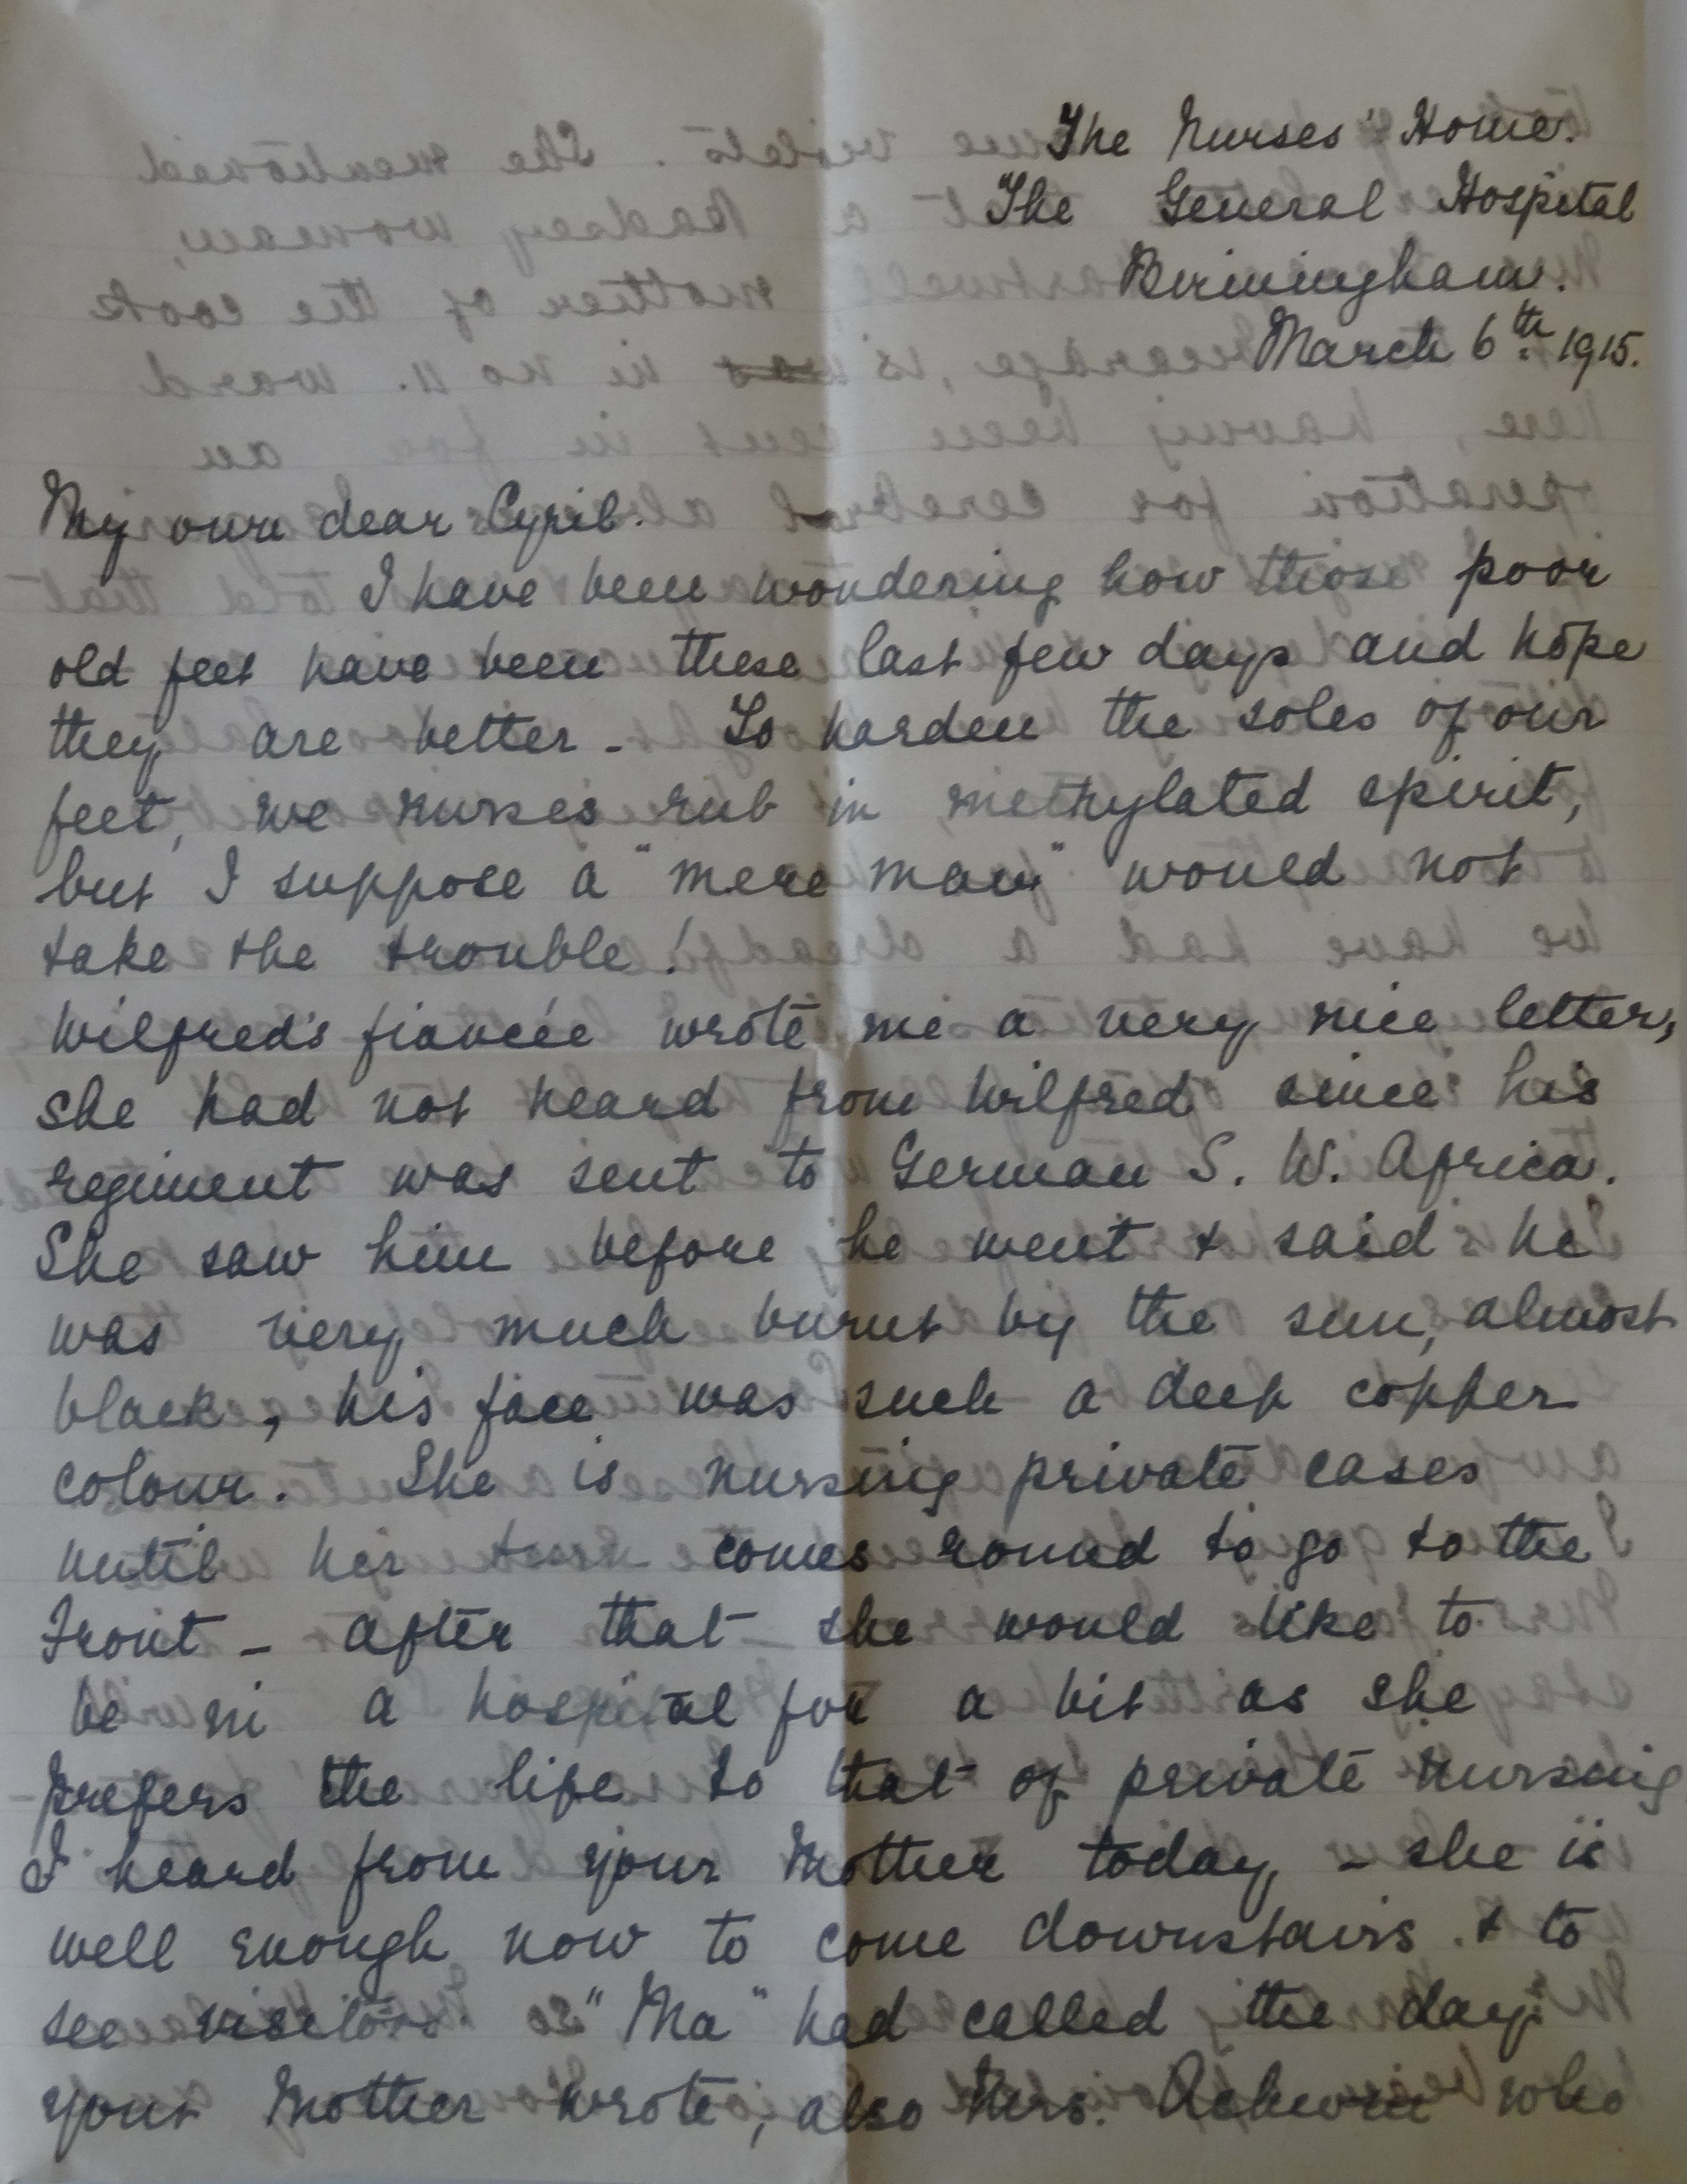 The Nurses' Home.
The General Hospital
Birmingham.
March 6th 1915.
My own dear Cyril.
I have been wondering how those poor
old feet have been these last few days and hope
they are better - To harden the soles of our
feet, we nurses rub in methylated spirit,
but I suppose a "mere man" would not
take the trouble!
Wilfred's fiancée wrote me a very nice letter,
she had not heard from Wilfred since his
regiment was sent to German S. W. Africa.
She saw him before he went & said he
was very much burnt by the sun, almost
black, his face was such a deep copper
colour. She is nursing private cases
until her turn comes round to go to the
Front - after that she would like to
be in a hospital for a bit as she
prefers the life to that of private nursing
I heard from your Mother today, - she is
well enough now to come downstairs & to
see visitors so "Ma" had called the day
your Mother wrote, also Mrs. who